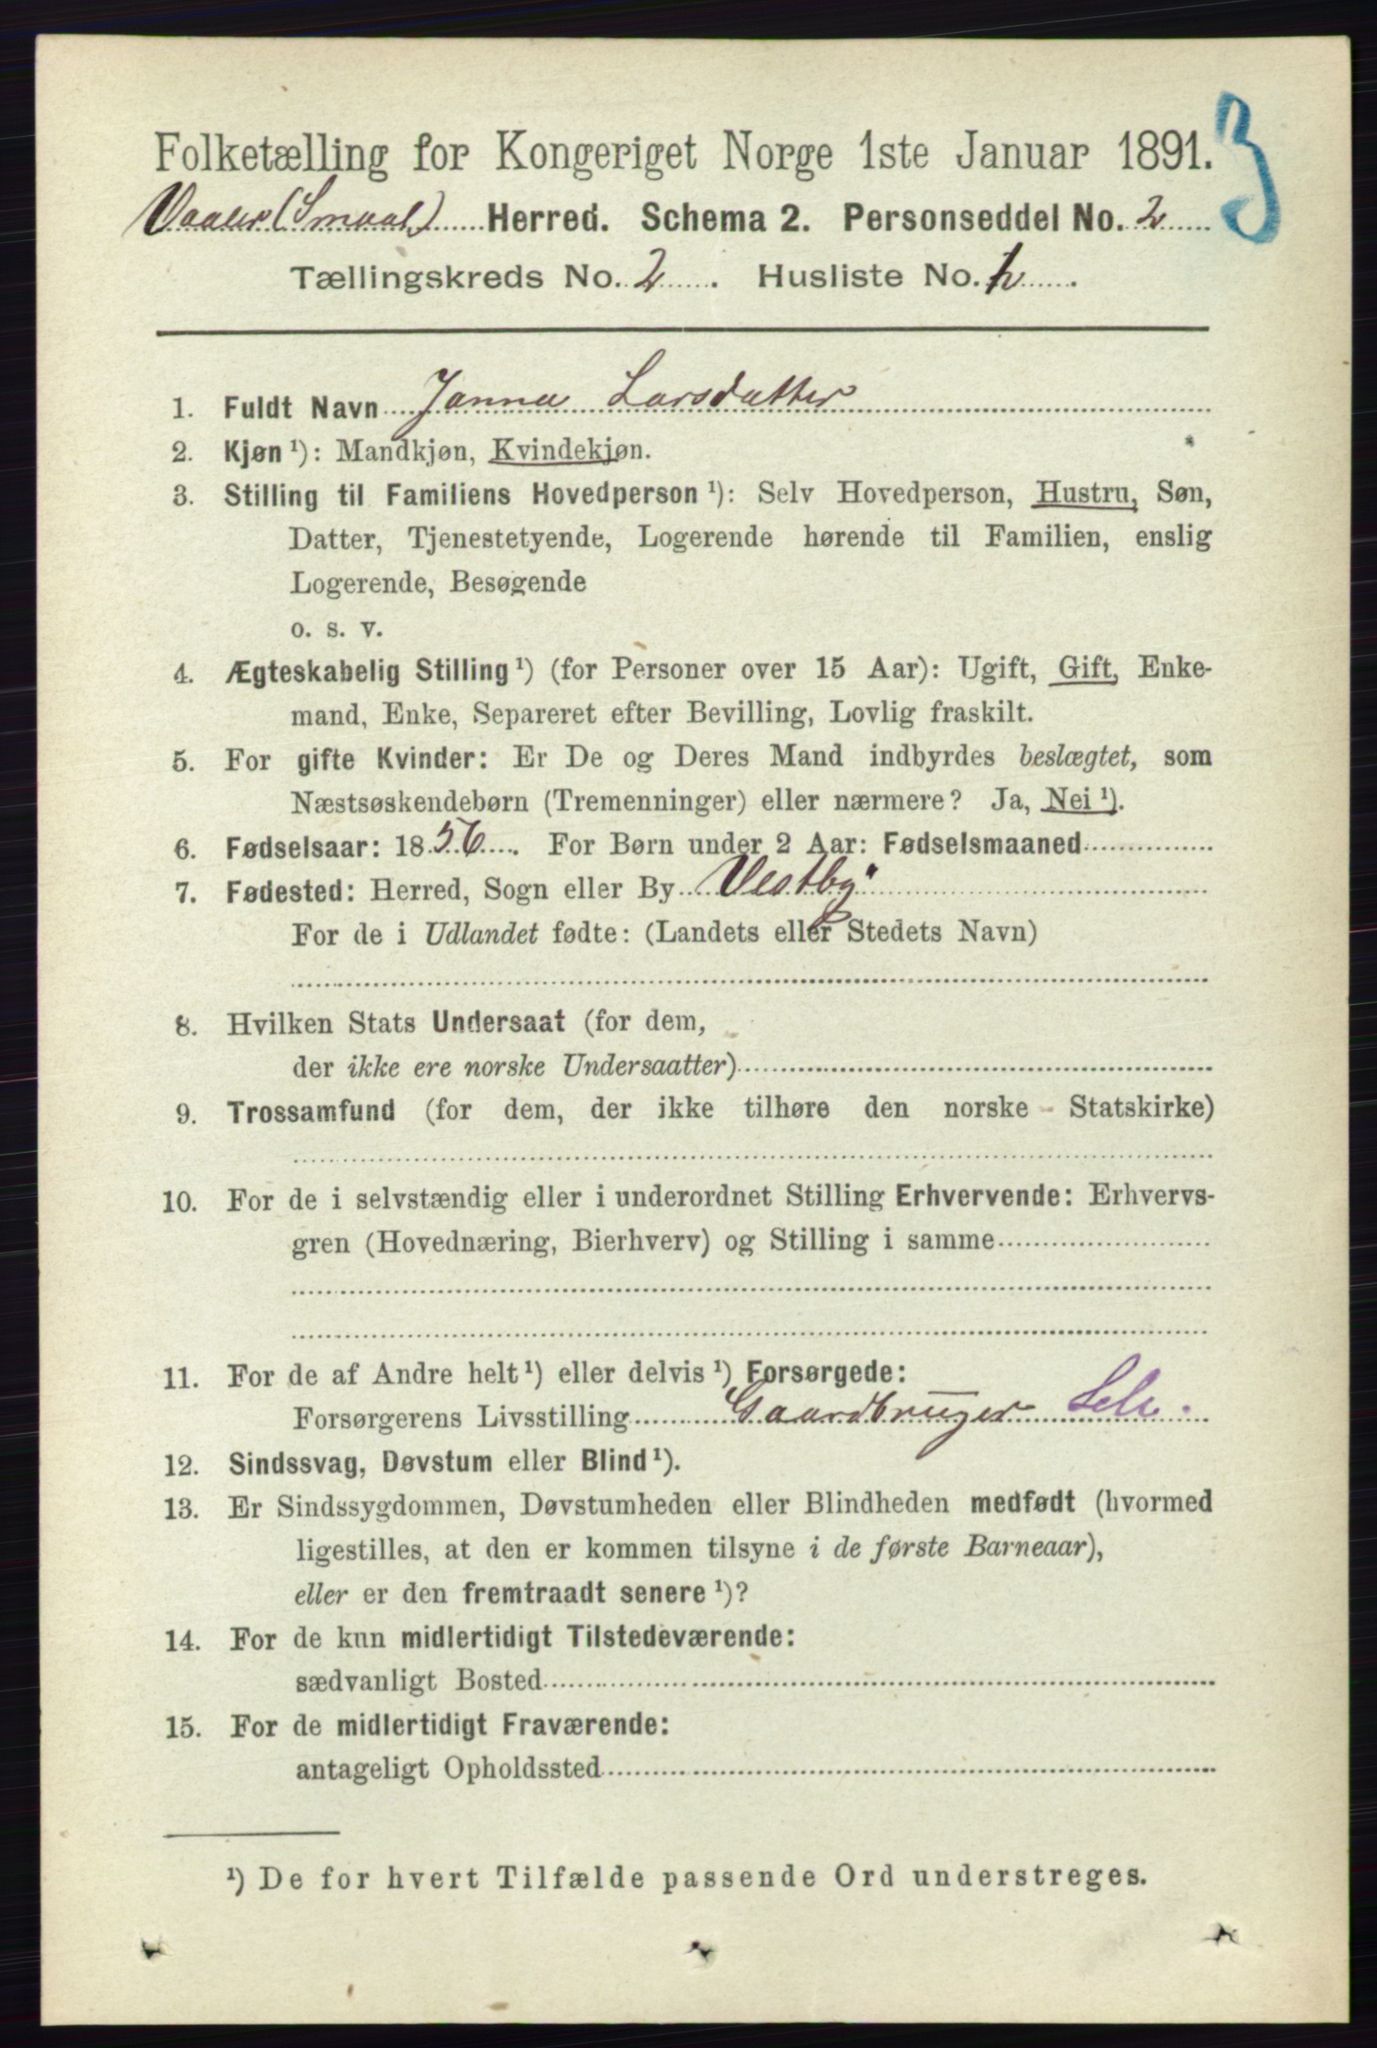 Folketælling for Kongeriget Norge 1ste Januar 1891.
3
Vaaler (Smaal.) Herred. Schema 2. Personseddel No. 2
Tællingskreds No. 2. Husliste No.
1. Fuldt Navn Janna Larsdatter
2. Kjøn ¹): Mandkjøn, Kvindekjøn.
3. Stilling til Familiens Hovedperson ¹): Selv Hovedperson, Hustru, Søn,
Datter, Tjenestetyende, Logerende hørende til Familien, enslig
Logerende, Besøgende
o. s. v.
4. Ægteskabelig Stilling ¹) (for Personer over 15 Aar): Ugift, Gift, Enke-
mand, Enke, Separeret efter Bevilling, Lovlig fraskilt.
5. For gifte Kvinder: Er De og Deres Mand indbyrdes beslægtet, som
Næstsøskendebørn (Tremenninger) eller nærmere? Ja, Nei ¹).
6. Fødselsaar: 1856. For Børn under 2 Aar: Fødselsmaaned
7. Fødested: Herred, Sogn eller By Vestby
For de i Udlandet fødte: (Landets eller Stedets Navn)
8. Hvilken Stats Undersaat (for dem,
der ikke ere norske Undersaatter)
9. Trossamfund (for dem, der ikke tilhøre den norske Statskirke)
10. For de i selvstændig eller i underordnet Stilling Erhvervende: Erhvervs-
gren (Hovednæring, Bierhverv) og Stilling i samme
11. For de af Andre helt ¹) eller delvis ¹) Forsørgede:
Forsørgerens Livsstilling Gaardbruger Sele.
12. Sindssvag, Døvstum eller Blind ¹).
13. Er Sindssygdommen, Døvstumheden eller Blindheden medfødt (hvormed
ligestilles, at den er kommen tilsyne i de første Barneaar),
eller er den fremtraadt senere ¹)?
14. For de kun midlertidigt Tilstedeværende:
sædvanligt Bosted
15. For de midlertidigt Fraværende:
antageligt Opholdssted
¹) De for hvert Tilfælde passende Ord understreges.